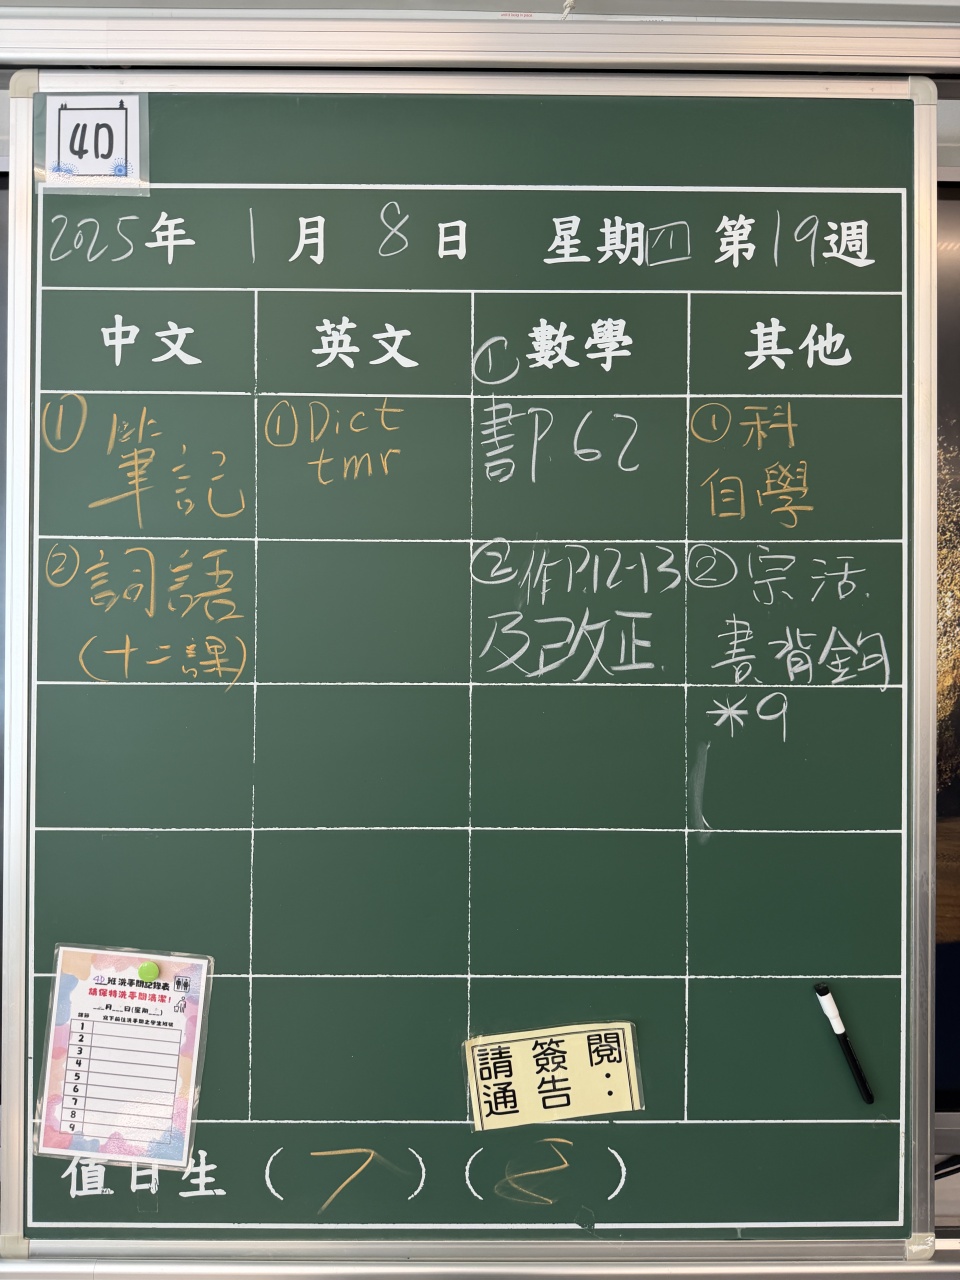 4D
2025年 1月 8日 星期四 第19週
中文 英文 數學 其他
①
①筆記
①Dict
tmr
書P.62
①科
自學
②詞語
(十二課)
②作P.12-13
及改正
②宗活
書,背鈞
*9
4D班洗手間記錄表
請保持洗手間清潔!
__月__日(星期__)
1
2
3
4
5
6
7
8
9
請簽閱:
通告
值日生 (7) (2)